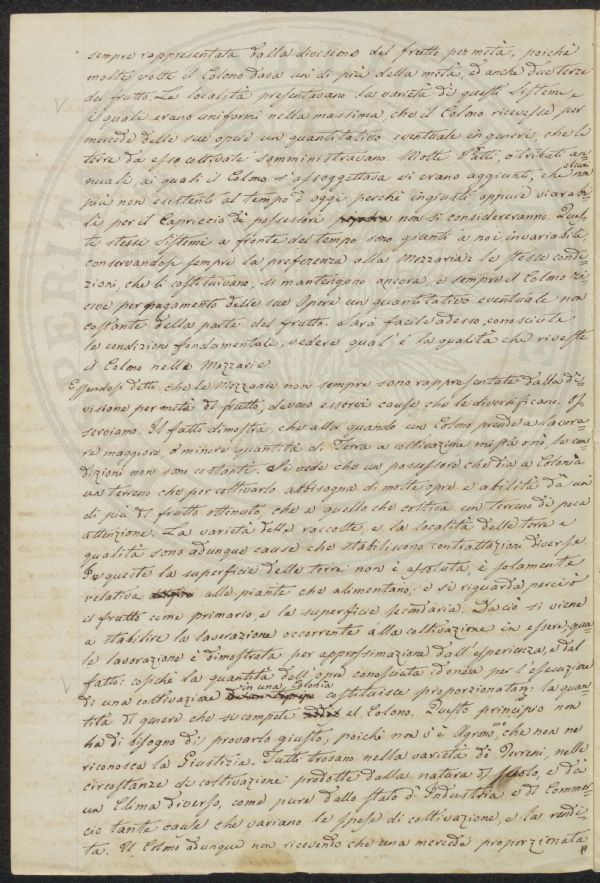 sempre rappresentata dalla divisione del frutto per metà; poichè
molte volte il Colono dava un di più della metà, e anche due terze
del frutto. Le località presentavano la varietà di questi Sistemi, e
i quali erano uniformi nella massima, che il Colono ricevesse per
mercede delle sue opere un quantitativo eventuale in genere, che le
terre da esso coltivate somministravano. Molti Patti, o tributi an=
nuali, ai quali il Colono s'assoggettava vi erano aggiunti, che alcuni non
più non esistenti al tempo d'oggi perchè ingiusti, oppure viarabi=
li per il Capriccio di possessori non si considereranno. Ques=
te stesse sistemi a fronte del tempo sono giunti a noi invariabili,
conservandosi sempre la preferenza alla Mezzaria: le stesse condi=
zioni, che li costituivano, si mantengono ancora, e sempre il Colono ri=
ceve per pagamento delle sue Opere un quantitativo eventuale non
costante della parte del frutto. Sarà facile adesso, conosciute
le condizioni fondamentale, vedere qual'è la qualità che riveste
il Colono nelle Mezzarie
Essendosi detto, che le Mezzarie non sempre sono rappresentate dalla di=
visione per metà di frutto, devono esservi cause che le diversificano. Os=
serviamo. Il fatto dimostra che alla quando un Colono prende a lavora=
re maggiore, o minore quantità di Terra a coltivazione mista o nò le con=
dizioni non sono costanti. Si vede che un possessore che dia a Colonia
un terreno che per coltivarlo abbisogna di molte opre e abilità da un
di più di frutto ottenuto, che a quello che coltiva un terreno di poca
attenzione. La varietà delle raccolte, e la località delle terre e
qualità sono adunque cause che stabiliscono contrattazioni diverse.
In queste la superficie delle terre non è assoluta, è solamente
relativa alle piante che alimentano; e si riguarda perciò
il frutto come primario, e la superficie secondaria. Da ciò si viene
a stabilire la lavorazione occorrente alla coltivazione in essere; qua=
le lavorazione è dimostrata per approssimazione dall'esperienza, e dal
fatto: cosichè la quantità dell'opre conosciuta idonea per l'esecuzione
di una coltivazione in una Colonia costituisce proporzionatam: la quan=
tità di genere che si compete al Colono. Questo principio non
ha di bisogno di provarlo giusto, poichè non v'è Agronomo, che non ne
riconosca la Giustizia. Tutti trovano nella varietà di Terreni, nelle
circostanze di coltivazione prodotte dalla natura di suolo, e da
un Clima diverso, come pure dallo stato d'Industria e di Commer=
cio tante cause che variano le spese di coltivazione, e la rendi=
ta. Il Colono adunque non ricevendo che una mercede proporzionata